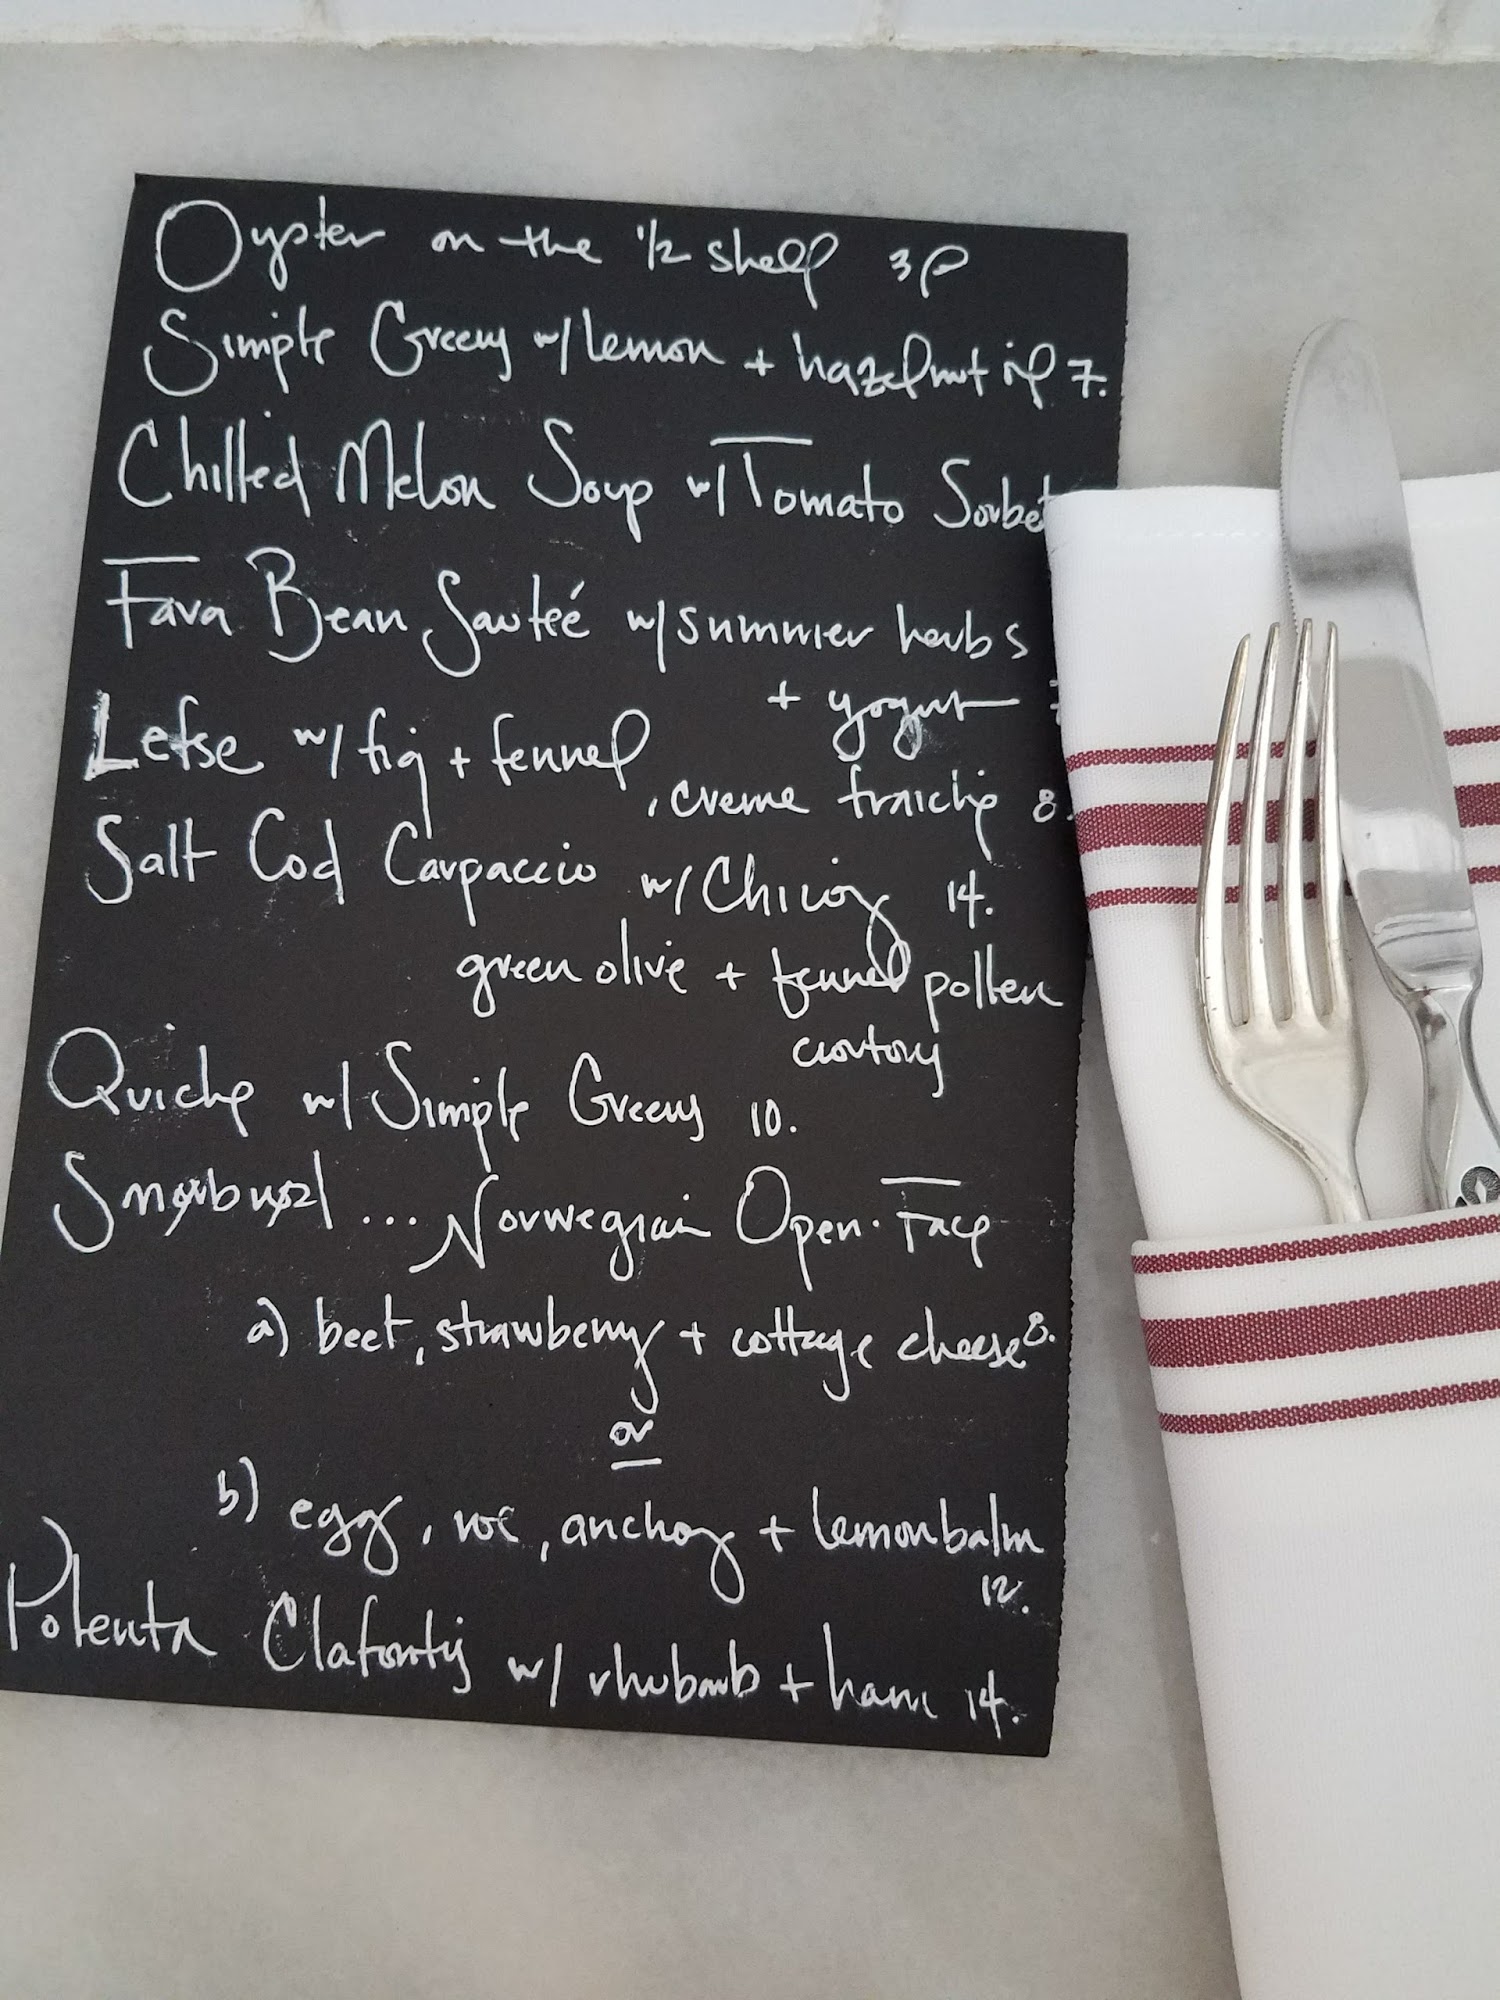 Oyster on the 1/2 shell 3
Simple Greens w/ lemon + hazelnut oil 7.
Chilled Melon Soup w/ Tomato Sorbet
Fava Bean Sauteé w/ summer herbs
+ yogurt
Lefse w/ fig + fennel
, creme fraiche 8.
Salt Cod Carpaccio w/ 14.
green olive + fennel pollen
Quiche w/ Simple Greens 10.
... Norwegian Open-Face
a) beet, strawberry + cottage cheese 8.
or
b) egg, roe, anchovy + lemonbalm
12.
Polenta Clafoutis w/ rhubarb + ham 14.